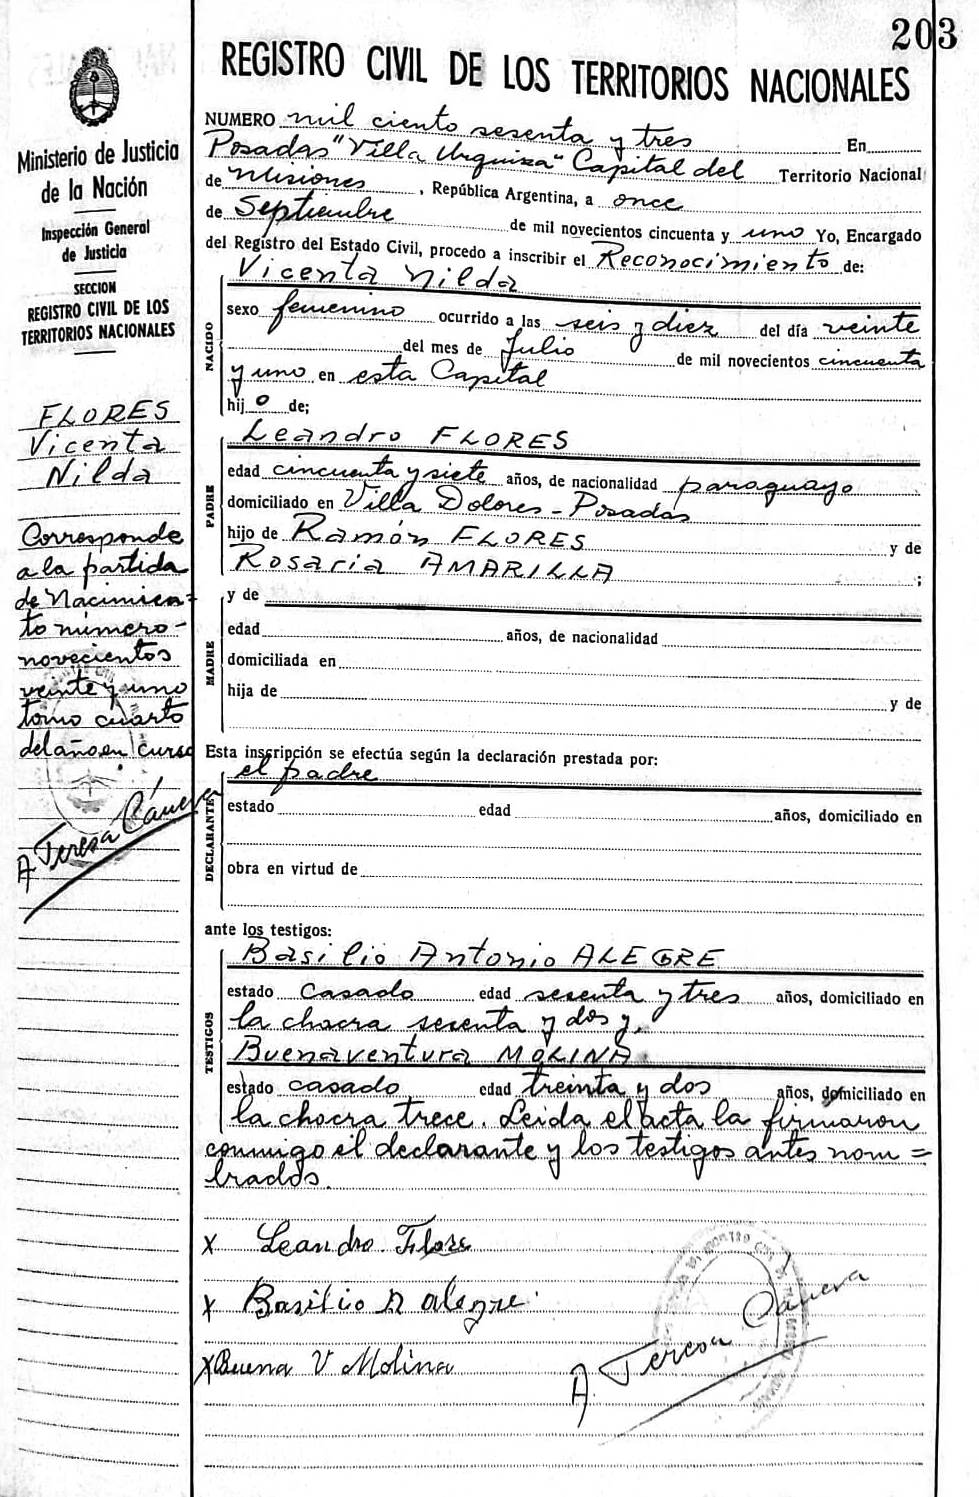 203
REGISTRO CIVIL DE LOS TERRITORIOS NACIONALES
Ministerio de Justicia
de la Nación
Inspección General
de Justicia
SECCION
REGISTRO CIVIL DE LOS
TERRITORIOS NACIONALES
FLORES
Vicenta
Nilda
Corresponde
a la partida
de Nacimien=
to número-
novecientos
veinte y uno
tomo cuarto
del año en curso
A Teresa Cáneva
NUMERO mil ciento sesenta y tres En
Posadas "Villa Urquiza" Capital del Territorio Nacional
de Misiones, República Argentina, a once
de Septiembre de mil novecientos cincuenta y uno Yo, Encargado
del Registro del Estado Civil, procedo a inscribir el Reconocimiento de:
Vicenta Nilda
NACIDO
sexo femenino ocurrido a las seis y diez del día veinte
del mes de Julio de mil novecientos cincuenta
y uno en esta Capital
hij o de;
Leandro FLORES
PADRE
edad cincuenta y siete años, de nacionalidad paraguayo
domiciliado en Villa Dolores - Posadas
hijo de Ramón FLORES y de
Rosaria AMARILLA ;
MADRE
y de
edad años, de nacionalidad
domiciliada en
hija de y de
Esta inscripción se efectúa según la declaración prestada por:
el padre
DECLARANTE
estado edad años, domiciliado en
obra en virtud de
ante los testigos:
Basilio Antonio ALEGRE
TESTIGOS
estado casado edad sesenta y tres años, domiciliado en
la chacra sesenta y dos y,
Buenaventura MOLINA
estado casado edad treinta y dos años, domiciliado en
la chacra trece. Leida el acta la firmaron
conmigo el declarante y los testigos antes nom=
brados.
x Leandro Flore
x Basilio A Alegre
x Buena V Molina
A. Teresa Cáneva